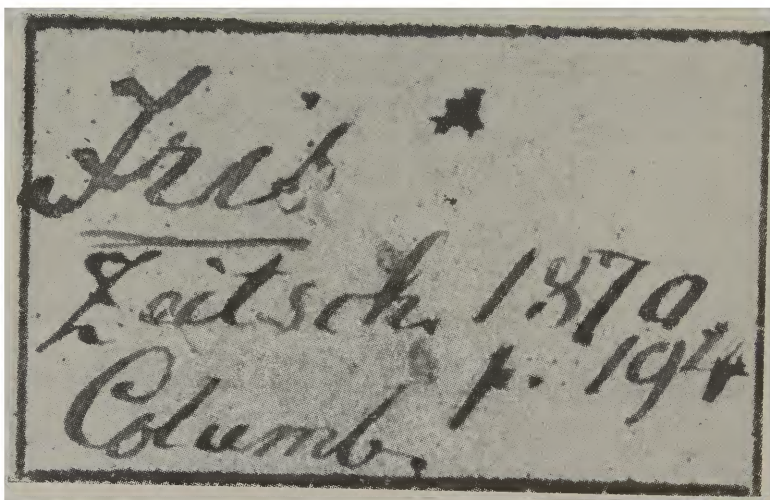 Iris
Zeitsch. 1870
p. 194
Columb.